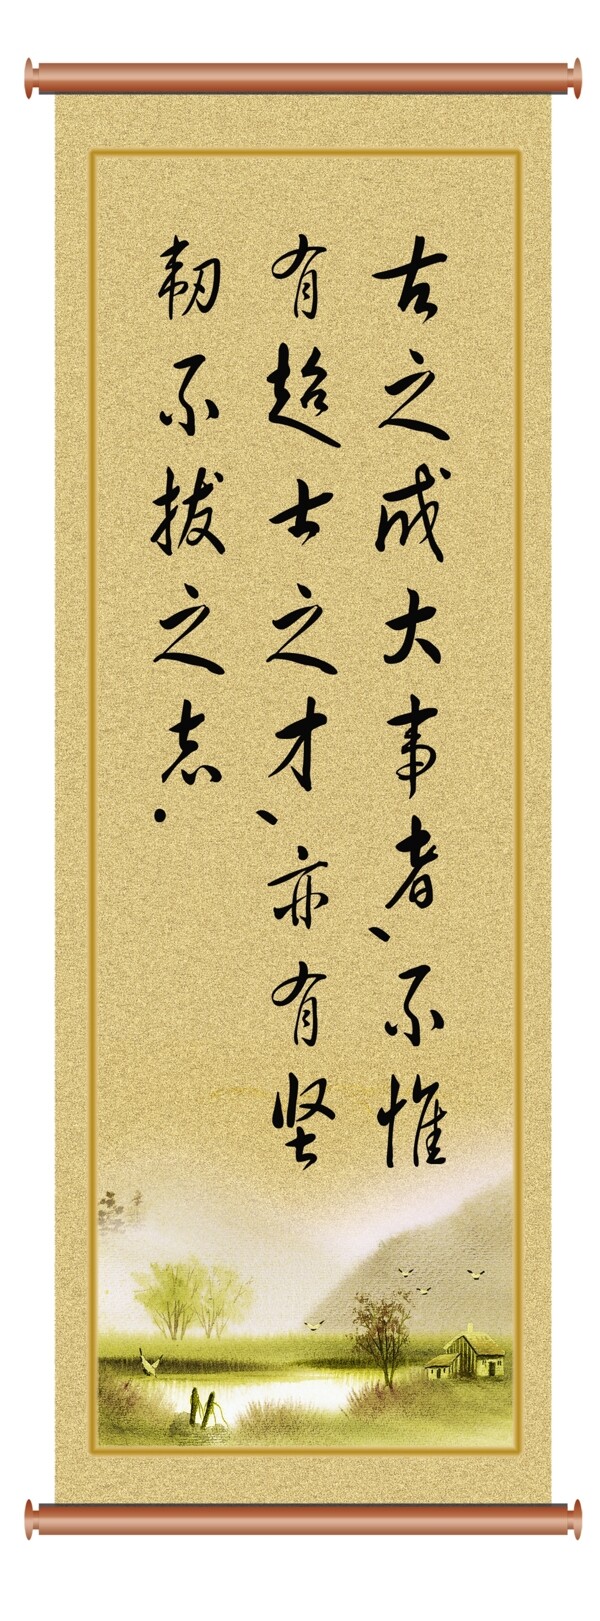 古之成大事者、不惟
有超士之才、亦有坚
韧不拔之志.